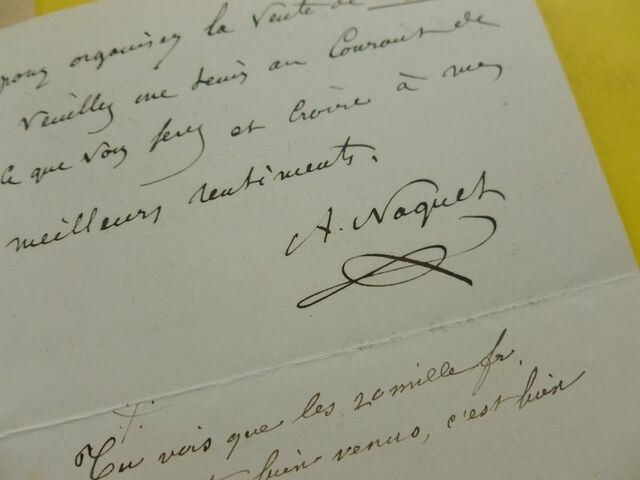 pour organiser la vente de
Veuillez me tenir au Courant de
ce que vous ferez et Croire à mes
meilleurs sentiments.
A. Naquet
Tu vois que les 20 mille fr.
bien venus, c'est bien